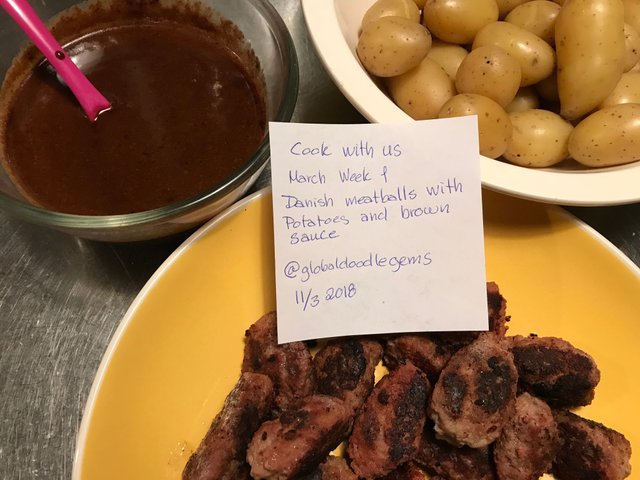 Cook with us
March Week 1
Danish meatballs with
Potatoes and brown
sauce
@globaldoodlegems
11/3 2018